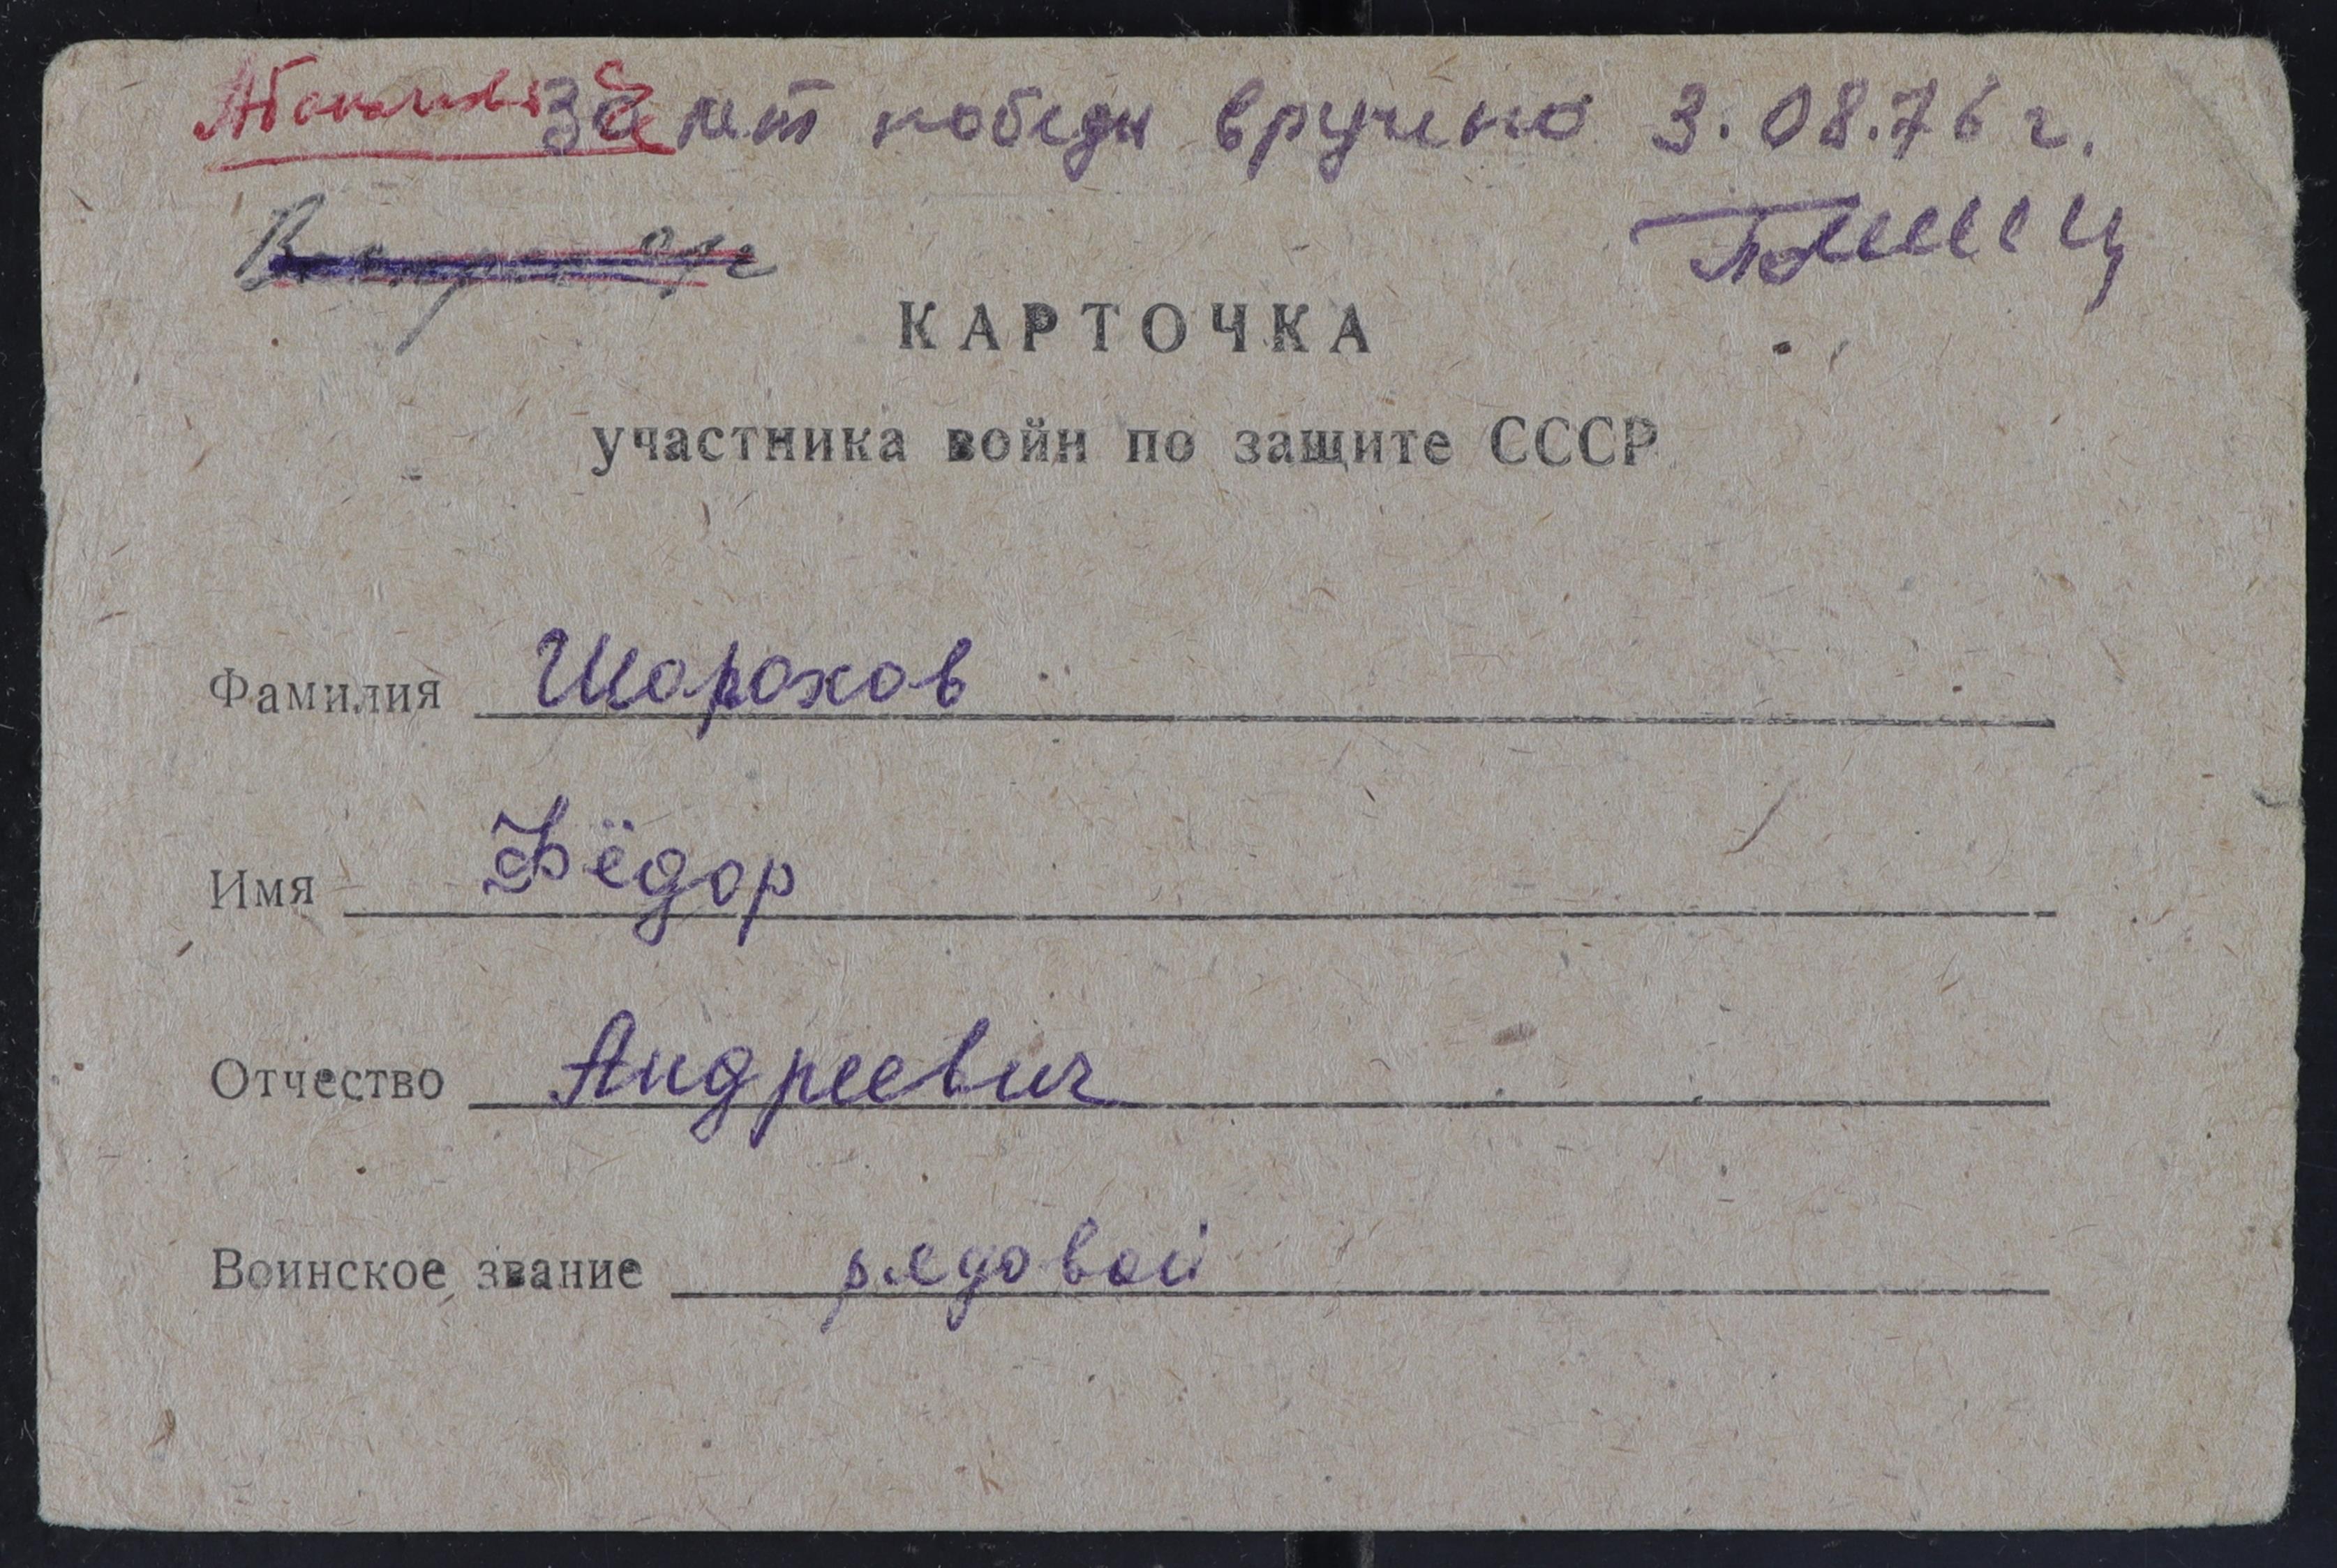 30 лет победы вручено 3.08.76 г.
КАРТОЧКА
участника войн по защите СССР
Фамилия Шорохов
Имя Фёдор
Отчество Андреевич
Воинское звание рядовой